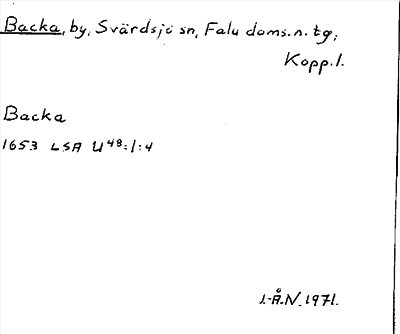 Backa, by, Svärdsjö sn, Falu doms.n.tg,
Kopp.l.
Backa
1653 LSA U48:1:4
I.Å.N. 1971.